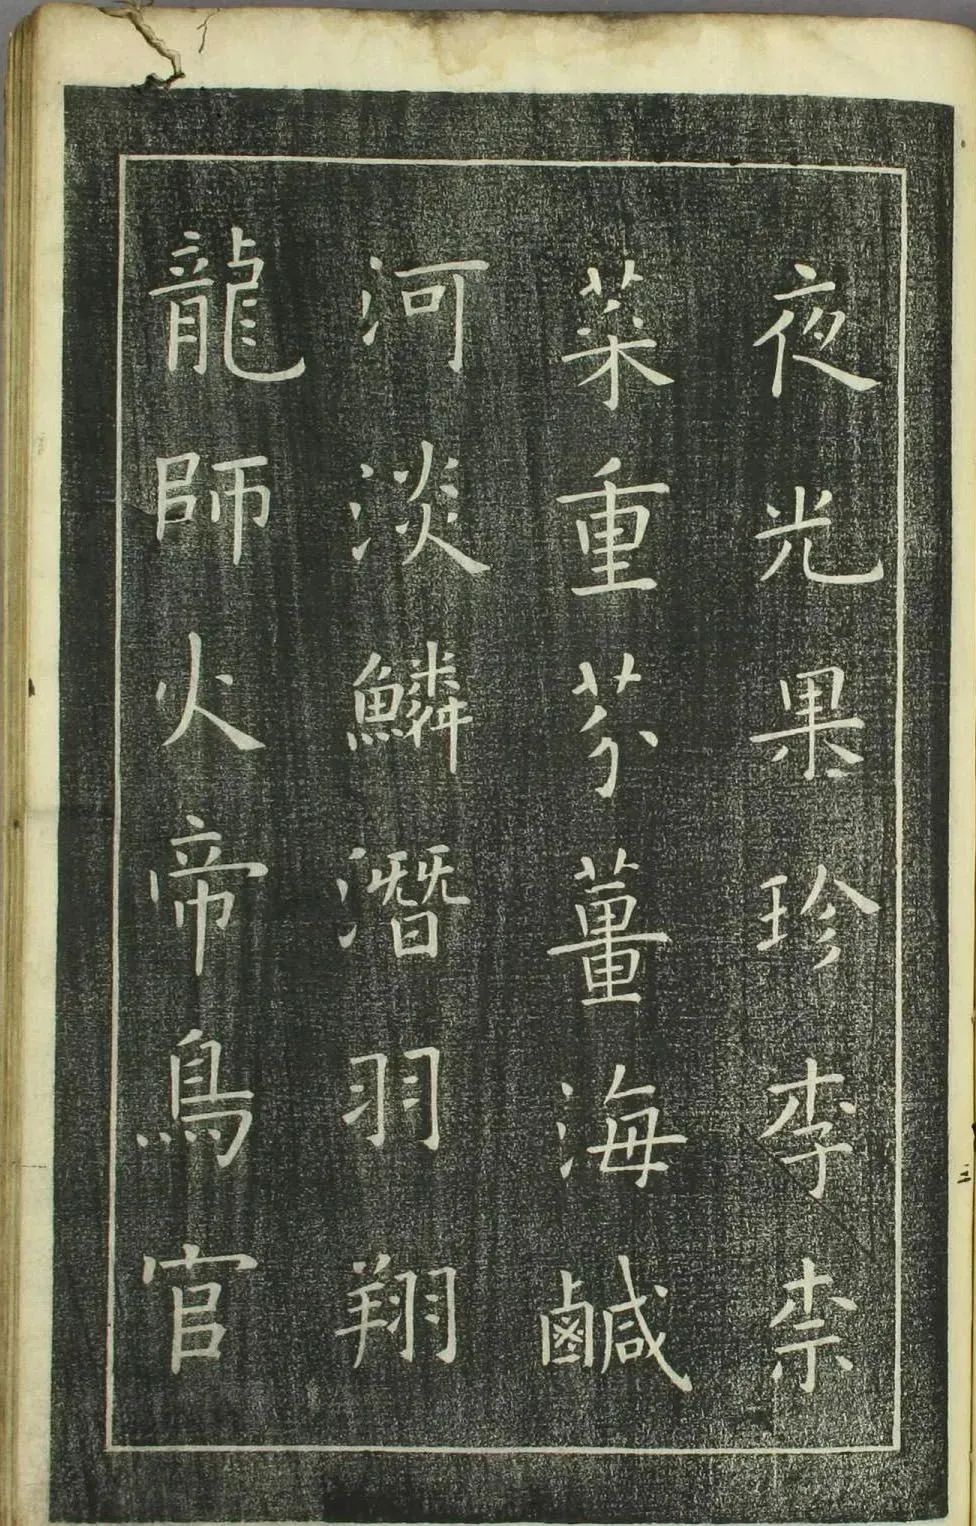 夜光果珍李柰
菜重芥薑海鹹
河淡鱗潛羽翔
龍師火帝鳥官